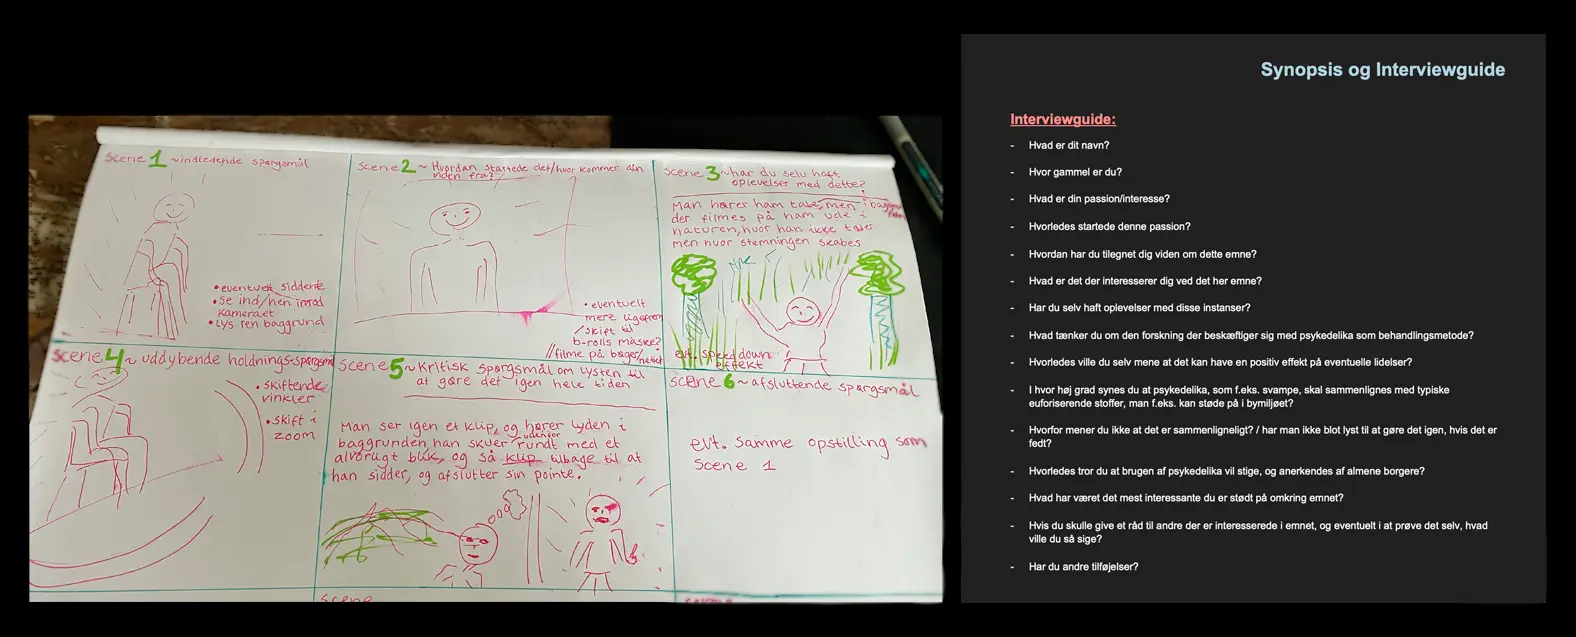 scene 1 ~ indledende spørgsmål
• eventuelt siddende
• se ind/hen imod
kameraet
• Lys ren baggrund
scene 2 ~ Hvordan startede det/hvor kommer din
viden fra?
• eventuelt
mere ligefrem
/skift til
b-rolls måske?
//filme på bøger/
scene 3 ~ har du selv haft
oplevelser med dette?
Man hører ham tale, men i
der filmes på ham ude i
naturen, hvor han ikke taler
men hvor stemningen skabes
evt. speed down
effekt
scene 4 ~ uddybende holdnings-spørgsmål
• skiftende
vinkler
• skift i
zoom
scene 5 ~ Kritisk spørgsmål om lysten til
at gøre det igen hele tiden
Man ser igen et klip, og hører lyden i
baggrunden, han skuer rundt med et
udenfor
alvorligt blik, og så klip tilbage til at
han sidder, og afslutter sin pointe.
scene 6 ~ afsluttende spørgsmål
evt. samme opstilling som
scene 1
scene
Synopsis og Interviewguide
Interviewguide:
- Hvad er dit navn?
- Hvor gammel er du?
- Hvad er din passion/interesse?
- Hvorledes startede denne passion?
- Hvordan har du tilegnet dig viden om dette emne?
- Hvad er det der interesserer dig ved det her emne?
- Har du selv haft oplevelser med disse instanser?
- Hvad tænker du om den forskning der beskæftiger sig med psykedelika som behandlingsmetode?
- Hvorledes ville du selv mene at det kan have en positiv effekt på eventuelle lidelser?
- I hvor høj grad synes du at psykedelika, som f.eks. svampe, skal sammenlignes med typiske
euforiserende stoffer, man f.eks. kan støde på i bymiljøet?
- Hvorfor mener du ikke at det er sammenligneligt? / har man ikke blot lyst til at gøre det igen, hvis det er
fedt?
- Hvorledes tror du at brugen af psykedelika vil stige, og anerkendes af almene borgere?
- Hvad har været det mest interessante du er stødt på omkring emnet?
- Hvis du skulle give et råd til andre der er interesserede i emnet, og eventuelt i at prøve det selv, hvad
ville du så sige?
- Har du andre tilføjelser?